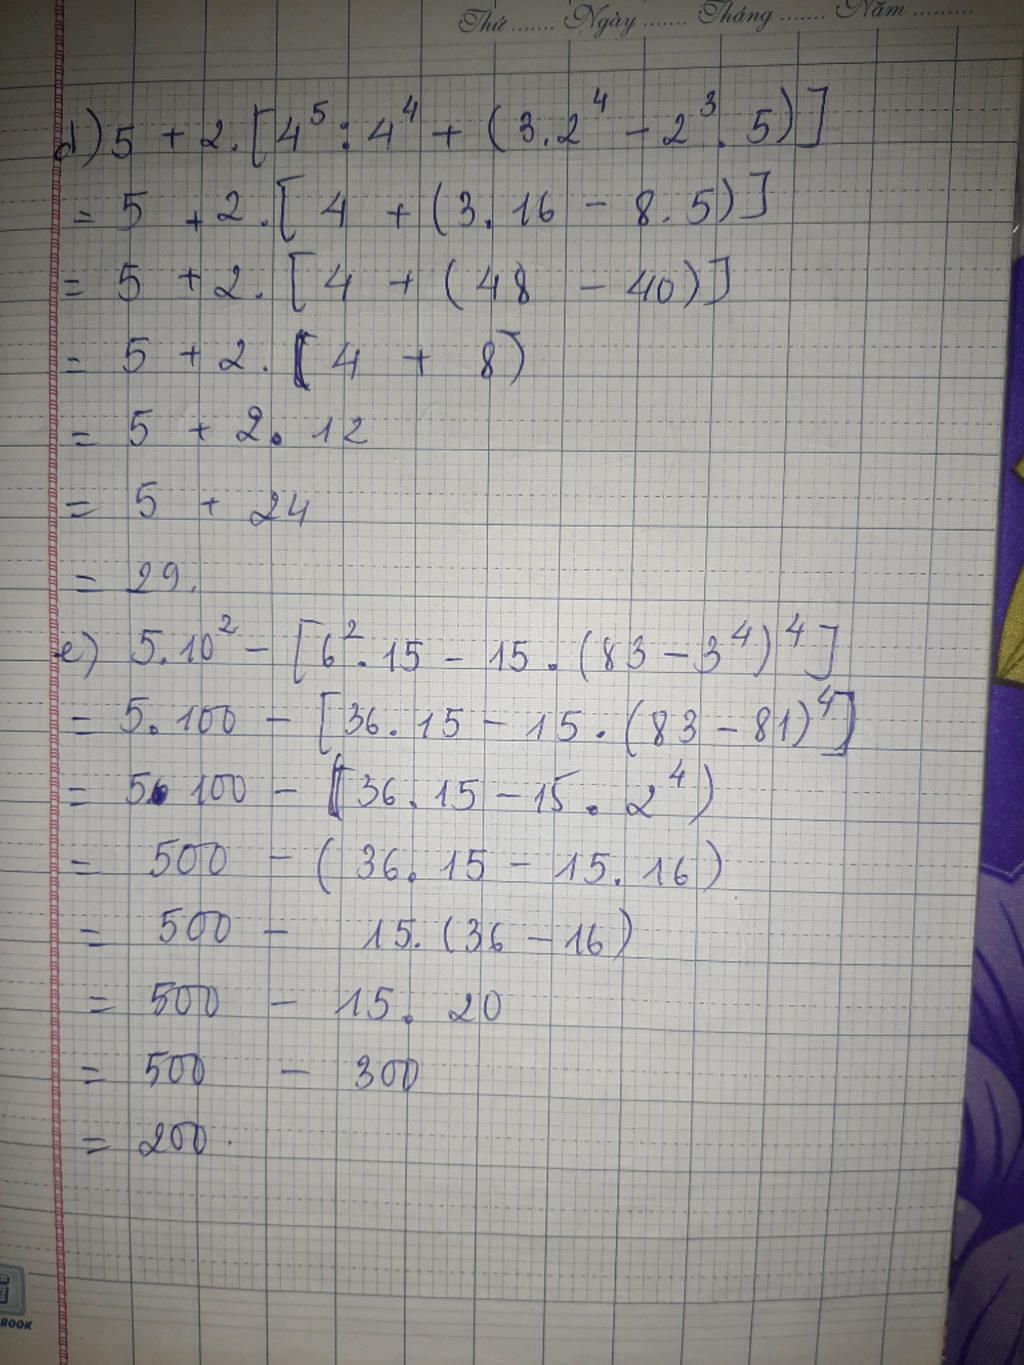 Thứ ....... Ngày ....... Tháng ....... Năm .........
d) 5 + 2.[4⁵ : 4⁴ + (3.2⁴ - 2³.5)]
= 5 + 2.[4 + (3.16 - 8.5)]
= 5 + 2.[4 + (48 - 40)]
= 5 + 2.(4 + 8)
= 5 + 2.12
= 5 + 24
= 29.
e) 5.10² - [6².15 - 15.(83 - 3⁴)⁴]
= 5.100 - [36.15 - 15.(83 - 81)⁴]
= 5.100 - (36.15 - 15.2⁴)
= 500 - (36.15 - 15.16)
= 500 - 15.(36 - 16)
= 500 - 15.20
= 500 - 300
= 200.